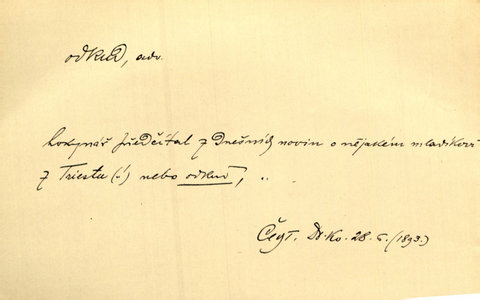 odkud, adv.
Lokynář předčítal z Dnešních novin o nějakém mladíkovi
z Triestu (!) nebo odkud, ..
Čeyt. 28. (1893.)